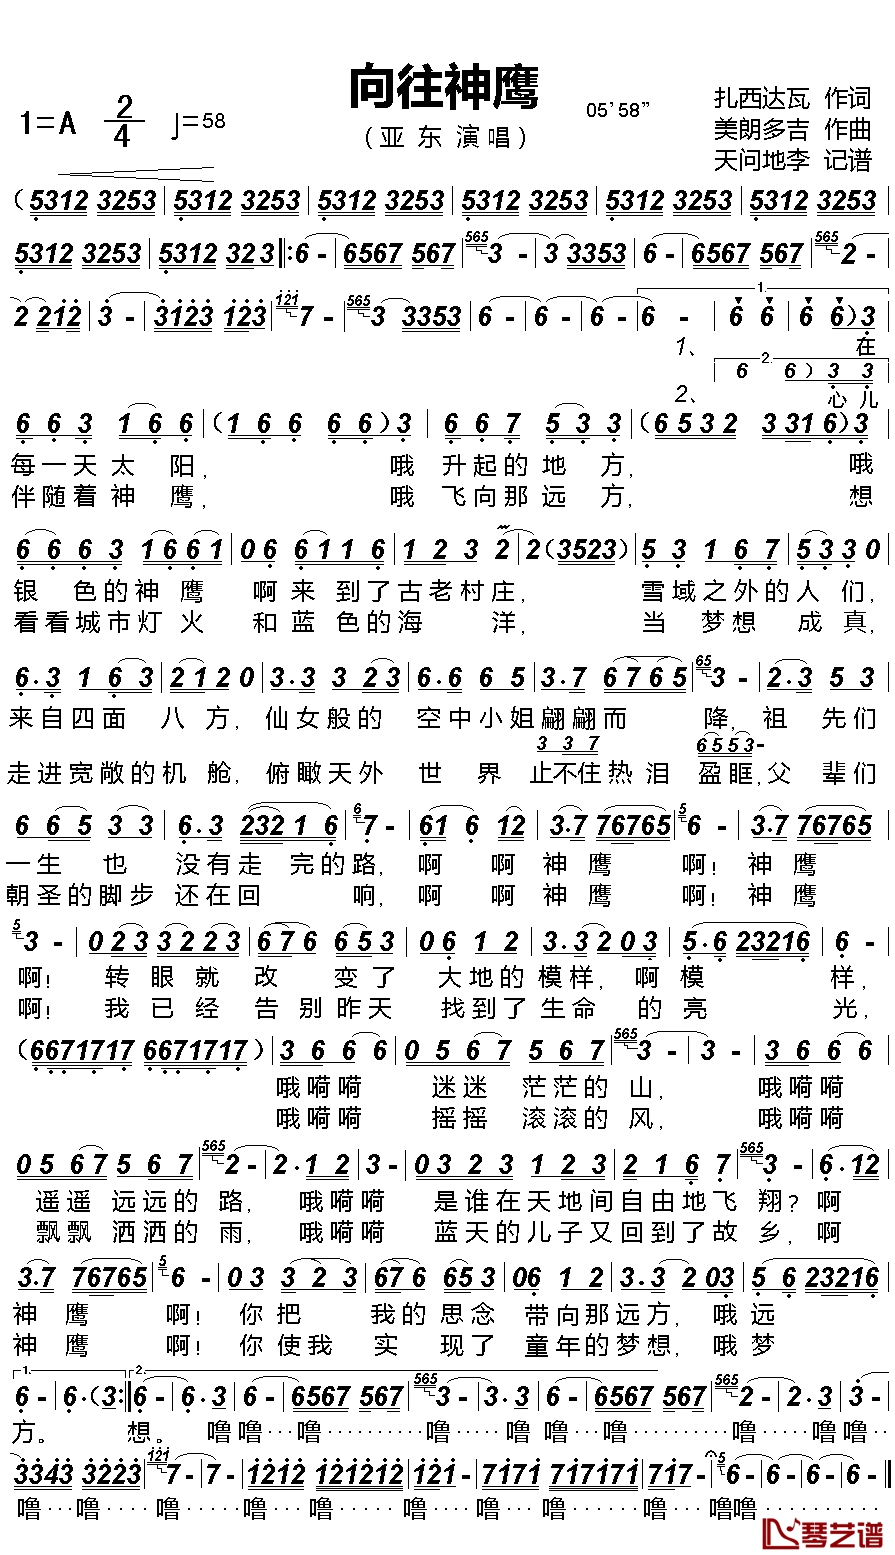 向往神鹰
1=A 2/4 ♩=58
（亚东演唱）
05'58"
扎西达瓦 作词
美朗多吉 作曲
天问地李 记谱
（5312 3253 | 5312 3253 | 5312 3253 | 5312 3253 | 5312 3253 | 5312 3253
5312 3253 | 5312 323 ‖: 6 - | 6567 567 | 565 3 - | 3 3353 | 6 - | 6567 567 | 565 2 -
2 212 | 3 - | 3123 123 | 121 7 - | 565 3 3353 | 6 - | 6 - | 6 - | 1. 6 - | 6 6 | 6 6）3
1、 在
2. 6 6）3 3
2、 心儿
6 6 3 1 6 6 |（1 6 6 6 6）3 | 6 6 7 5 3 3 |（6 5 3 2 3 3 1 6）3
每一天太阳， 哦升起的地方， 哦
伴随着神鹰， 哦飞向那远方， 想
6 6 6 3 1 6 6 1 | 0 6 6 1 1 6 | 1 2 3 2 | 2（3523）| 5 3 1 6 7 | 5 3 3 3 0
银色的神鹰啊来到了古老村庄， 雪域之外的人们，
看看城市灯火和蓝色的海洋， 当梦想成真，
6. 3 1 6 3 | 2 1 2 0 | 3. 3 3 2 3 | 6. 6 6 5 | 3. 7 6 7 6 5 | 65 3 - | 2. 3 5 3
来自四面八方，仙女般的空中小姐翩翩而降，祖先们
3 3 7 6553-
走进宽敞的机舱，俯瞰天外世界止不住热泪盈眶，父辈们
6 6 5 3 3 | 6. 3 2 3 2 1 6 | 6 7 - | 6 1 6 1 2 | 3. 7 7 6 7 6 5 | 5 6 - | 3. 7 7 6 7 6 5
一生也没有走完的路，啊啊神鹰啊！神鹰
朝圣的脚步还在回响，啊啊神鹰啊！神鹰
5 3 - | 0 2 3 3 2 2 3 | 6 7 6 6 5 3 | 0 6 1 2 | 3. 3 2 0 3 | 5. 6 2 3 2 1 6 | 6 -
啊！转眼就改变了大地的模样，啊模样，
啊！我已经告别昨天找到了生命的亮光，
（6671717 6671717）| 3 6 6 6 | 0 5 6 7 5 6 7 | 565 3 - | 3 - | 3 6 6 6
哦嗬嗬迷迷茫茫的山，哦嗬嗬
哦嗬嗬摇摇滚滚的风，哦嗬嗬
0 5 6 7 5 6 7 | 565 2 - | 2. 1 2 | 3 - | 0 3 2 3 1 2 3 | 2 1 6 7 | 565 3 - | 6. 1 2
遥遥远远的路，哦嗬嗬是谁在天地间自由地飞翔？啊
飘飘洒洒的雨，哦嗬嗬蓝天的儿子又回到了故乡，啊
3. 7 7 6 7 6 5 | 5 6 - | 0 3 3 2 3 | 6 7 6 6 5 3 | 0 6 1 2 | 3. 3 2 0 3 | 5 6 2 3 2 1 6
神鹰啊！你把我的思念带向那远方，哦远
神鹰啊！你使我实现了童年的梦想，哦梦
1. 6 - | 6.（3 :‖ 2. 6 - | 6. 3 | 6 - | 6567 567 | 565 3 - | 3. 3 | 6 - | 6567 567 | 565 2 - | 2. 3 | 3
方。 想。 噜噜···噜·········噜噜···噜·········噜噜···噜噜···
3343 3223 | 121 7 - | 7 - | 1212 121212 | 121 - | 7171 717171 | 717 - | 5 6 - | 6 - | 6 - ‖
噜···噜···噜······噜···噜···噜···噜···噜噜·········
琴艺谱